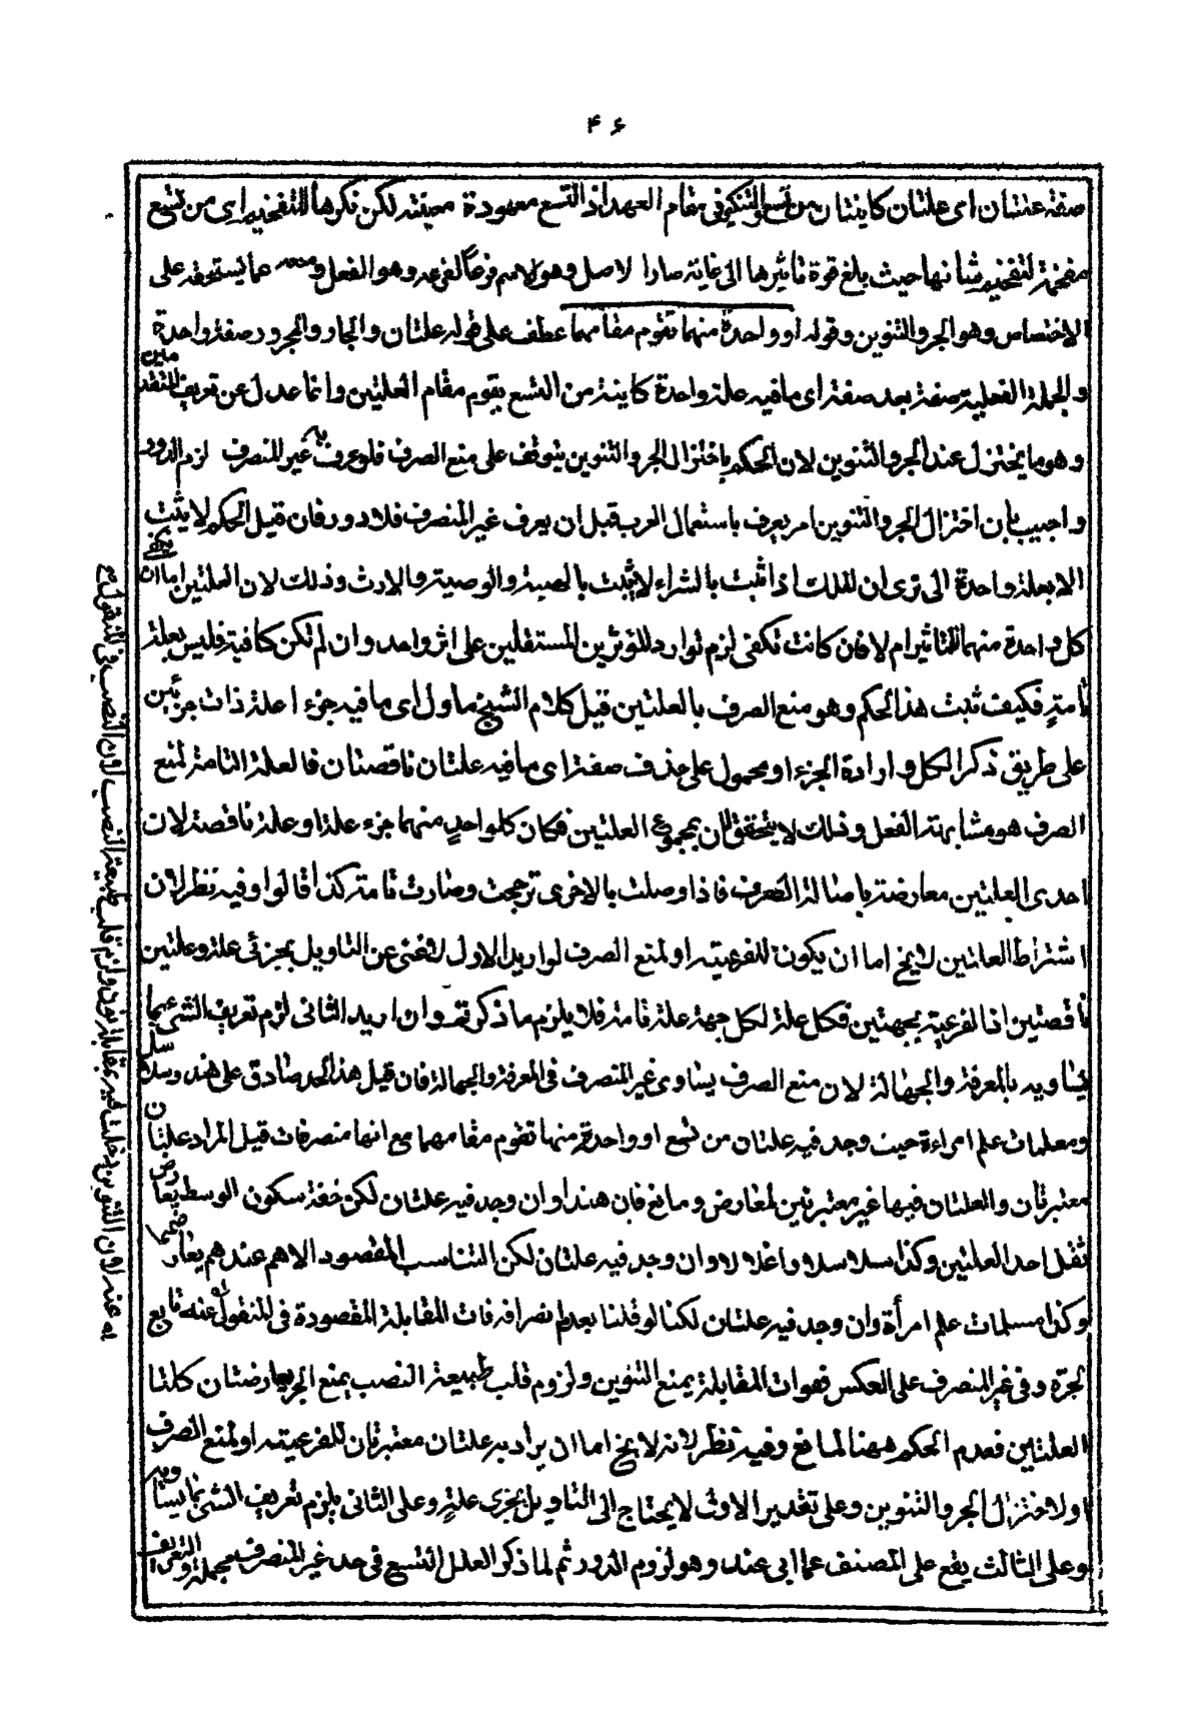 ۴۶
صفة علتان ای علتان کاینتان من تسع والتنکیر فی مقام العهد اذ التسع معهودة معینة لکن نکرها للتفخیم ای من تسع
مفخمة لتفخیم شانها حیث بلغ قوة تاثیرها الی غایة صارا لاصل وهو الاسم فرعا لفرعه وهو الفعل و عما یستحقه علی
الاختصاص وهو الجر والتنوین وقوله او واحدة منهما تقوم مقامهما عطف علی قوله علتان والجار والمجرور صفة واحدة
والجملة الفعلیة صفة بعد صفة ای ما فیه علة واحدة کاینة من التسع یقوم مقام العلتین وانما عدل عن تعریف المتقدمین
وهو ما یختزل عنه الجر والتنوین لان الحکم باختزال الجر والتنوین یتوقف علی منع الصرف فلو عرف به غیر المنصرف لزم الدور
واجیب بان اختزال الجر والتنوین امر یعرف باستعمال العرب قبل ان یعرف غیر المنصرف فلا دور فان قیل الحکم لا یثبت
الا بعلة واحدة الی تری ان الملک اذا ثبت بالشراء لا یثبت بالهبة والوصیة والارث وذلک لان العلتین اما ان
کل واحدة منهما للتاثیر ام لا فان کانت تکفی لزم توارد المؤثرین المستقلین علی اثر واحد وان لم تکن کافیة فلیس بعلة
تامة فکیف ثبت هذا الحکم وهو منع الصرف بالعلتین قیل کلام الشیخ ماول ای ما فیه جزء ا علة ذات جزئین
علی طریق ذکر الکل وارادة الجزء او محمول علی حذف صفة ای ما فیه علتان ناقصتان فالعلة التامة لمنع
الصرف هو مشابهة الفعل وذلک لا یتحقق الان بمجموع العلتین فکان کل واحد منهما جزء علة او علة ناقصة لان
احدی العلتین معارضة باصالة الصرف فاذا وصلت بالاخری ترجحت وصارت تامة کذا قالوا وفیه نظر لان
اشتراط العلتین لا یخ اما ان یکون للفرعیة او لمنع الصرف لو ارید الاول لاتغنی عن التاویل بجزئی علة وعلتین
ناقصتین اذ الفرعیة بجهتین فکل علة لکل جهة علة تامة فلا یلزم ما ذکرتم وان ارید الثانی لزم تعریف الشئ بما
یساویه بالمعرفة والجهالة لان منع الصرف یساوی غیر المنصرف فی المعرفة والجهالة فان قیل هذا الحد صادق علی هند وسلاسل
ومسلمات علم امراءة حیث وجد فیه علتان من تسع او واحدة منها تقوم مقامهما مع انها منصرفات قیل المراد علتان
معتبرتان والعلتان فیها غیر معتبرتین لمعارض ومانع فان هندا وان وجد فیه علتان لکن خفة سکون الوسط یعارض
ثقل احد العلتین وکذا سلاسلا واغلالا وان وجد فیه علتان لکن التناسب المقصود الاهم عندهم یعارضهما
وکذا مسلمات علم امرأة وان وجد فیه علتان لکنا لو قلنا بعدم انصرافه فات المقابلة المقصودة فی المنقول عنه لانه تابع
الجرّ وفی غیر المنصرف علی العکس فهوات المقابلة بمنع التنوین ولزوم قلب طبیعة النصب بمنع الجر یعارضتان کلتا
العلتین فعدم الحکم ههنا لمانع وفیه نظر لانه لا یخ اما ان یراد به علتان معتبرتان للفرعیة او لمنع الصرف
او لاختزال الجر والتنوین وعلی تقدیر الاول لا یحتاج الی التاویل بجزی علة وعلی الثانی یلزم تعریف الشئ بما یساویه
وعلی الثالث یقع علی المصنف عما ابی عنه وهو لزوم الدور ثم لما ذکر العلل التسع فی حد غیر المنصرف مجملة والتعریف